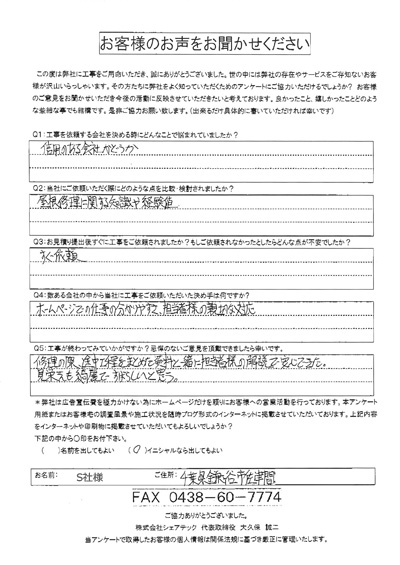 お客様のお声をお聞かせください
この度は弊社に工事をご用命いただき、誠にありがとうございました。世の中には弊社の存在やサービスをご存知ないお客
様が沢山いらっしゃいます。その方たちに弊社をよく知っていただくためのアンケートにご協力いただけるでしょうか? お客様
のご意見をお聞かせいただき今後の活動に反映させていただきたいと考えております。良かったこと、嬉しかったことどのよう
な些細な事でも結構です。是非ご協力お願い致します。(出来るだけ具体的に書いていただければ幸いです)
Q1:工事を依頼する会社を決める時にどんなことで悩まれていましたか?
信用がある会社かどうか
Q2:当社にご依頼いただく際にどのような点を比較・検討されましたか?
屋根修理に関する知識や経験値
Q3:お見積り提出後すぐに工事をご依頼されましたか?もしご依頼されなかったとしたらどんな点が不安でしたか?
すぐ依頼
Q4:数ある会社の中から当社に工事をご依頼いただいた決め手は何ですか?
ホームページでの仕事の分かりやすさ、担当者様の親切な対応
Q5:工事が終わってみていかがですか?忌憚のないご意見を頂戴できましたら幸いです。
修理の際、途中工程をまとめた資料と一緒に担当者様の解説で安心できた。
見栄えも綺麗で素晴らしいと思う。
*弊社は広告宣伝費を極力かけない為にホームページだけを頼りにお客様への営業活動を行っております。本アンケート
用紙またはお客様宅の調査風景や施工状況を随時ブログ形式のインターネットに掲載させていただいております。上記内容
をインターネットや印刷物に掲載させていただいてもよろしいでしょうか?
下記の中から〇印をお付け下さい。
( )名前を出してもよい (〇)イニシャルなら出してもよい
お名前: S社様 ご住所: 千葉県鎌ケ谷市佐津間
FAX 0438-60-7774
ご協力ありがとうございました。
株式会社シェアテック 代表取締役 大久保 誠二
当アンケートで取得したお客様の個人情報は関係法規に基づき厳正に管理いたします。